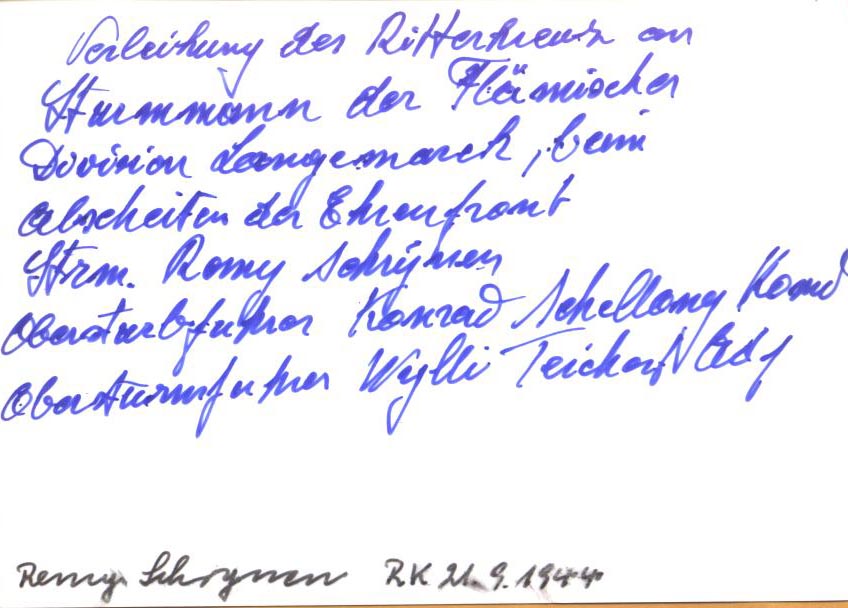 Verleihung des Ritterkreuz an
Sturmmann der Flämischer
Division Langemarck, beim
abscheiten der Ehrenfront
Strm. Remy Schrÿnen
Obersturbfuhrer Konrad Schellong Komd
Obersturmfuhrer Wylli Teichert Adj
Remy Schrijnen RK 21.9.1944